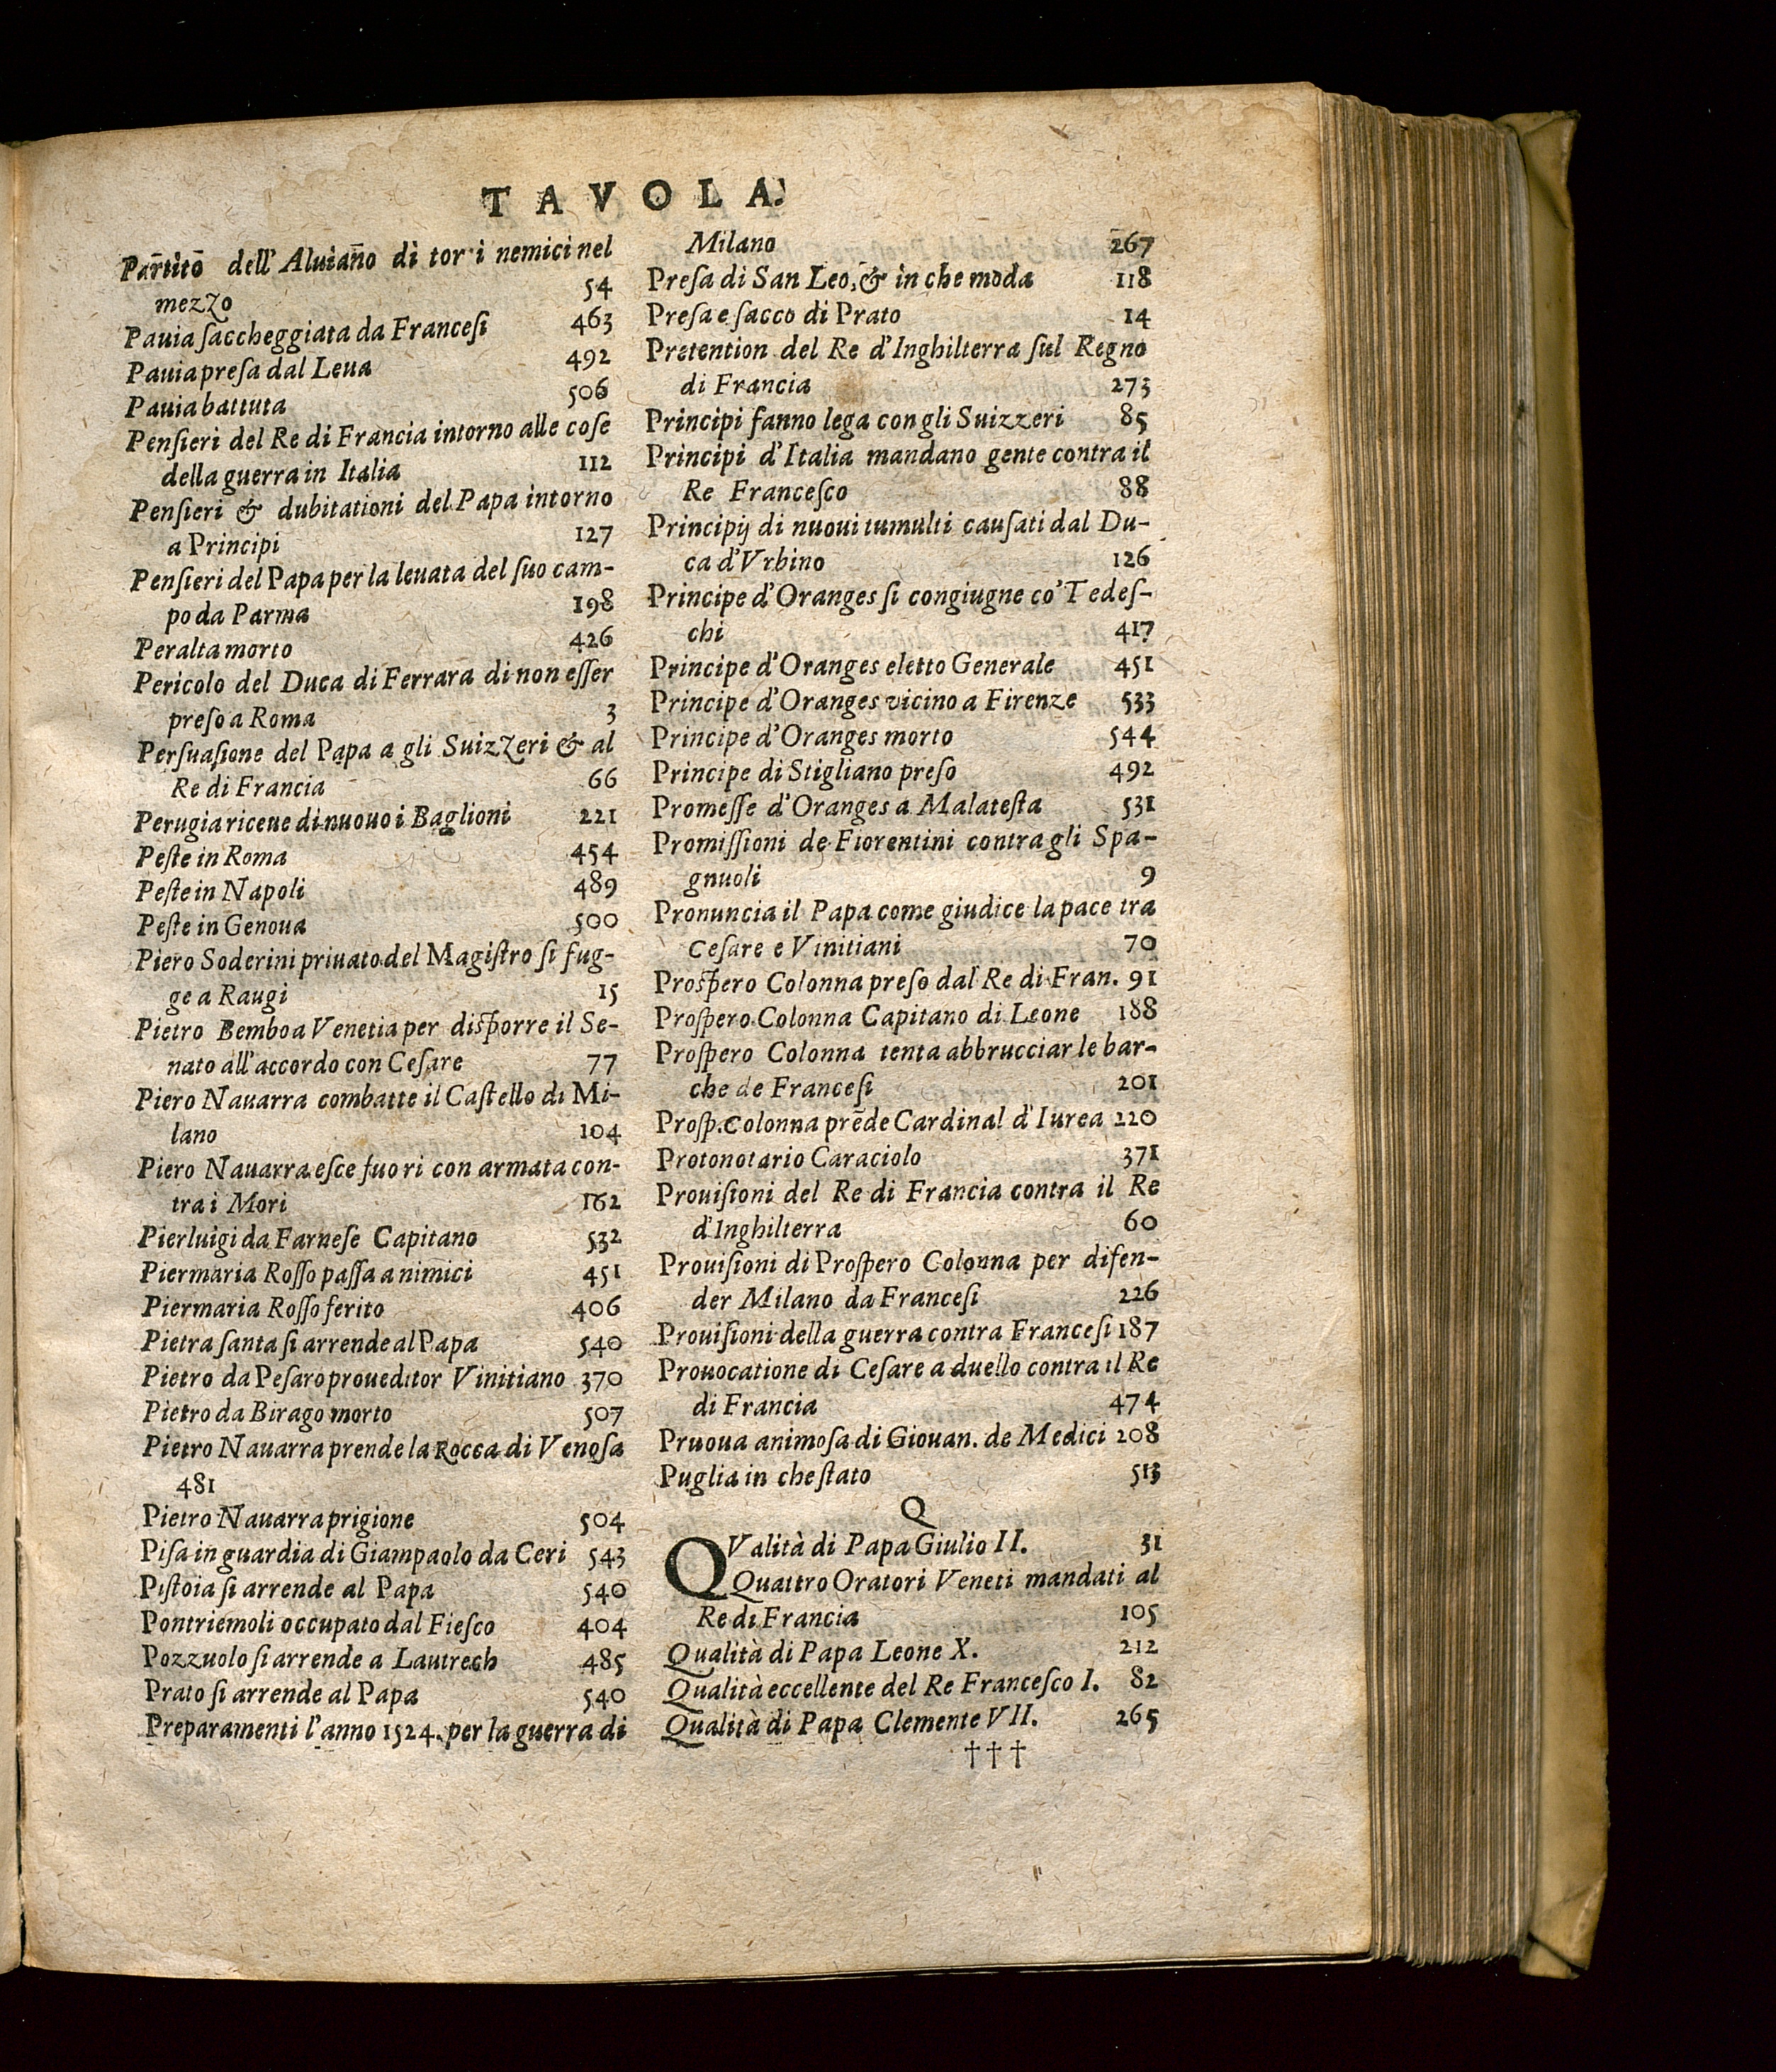 TAVOLA.
Partito dell'Aluiano di tor i nemici nel
mezzo 54
Pauia saccheggiata da Francesi 463
Pauia presa dal Leua 492
Pauia battuta 506
Pensieri del Re di Francia intorno alle cose
della guerra in Italia 112
Pensieri & dubitationi del Papa intorno
a Principi 127
Pensieri del Papa per la leuata del suo cam-
po da Parma 198
Peralta morto 426
Pericolo del Duca di Ferrara di non esser
preso a Roma 3
Persuasione del Papa a gli Suizzeri & al
Re di Francia 66
Perugia riceue di nuouo i Baglioni 221
Peste in Roma 454
Peste in Napoli 489
Peste in Genoua 500
Piero Soderini priuato del Magistro si fug-
ge a Raugi 15
Pietro Bembo a Venetia per disporre il Se-
nato all'accordo con Cesare 77
Piero Nauarra combatte il Castello di Mi-
lano 104
Piero Nauarra esce fuori con armata con-
tra i Mori 162
Pierluigi da Farnese Capitano 532
Piermaria Rosso passa a nimici 451
Piermaria Rosso ferito 406
Pietra santa si arrende al Papa 540
Pietro da Pesaro proueditor Vinitiano 370
Pietro da Birago morto 507
Pietro Nauarra prende la Rocca di Venosa
481
Pietro Nauarra prigione 504
Pisa in guardia di Giampaolo da Ceri 543
Pistoia si arrende al Papa 540
Pontriemoli occupato dal Fiesco 404
Pozzuolo si arrende a Lautrech 485
Prato si arrende al Papa 540
Preparamenti l'anno 1524. per la guerra di
Milano 267
Presa di San Leo, & in che moda 118
Presa e sacco di Prato 14
Pretention del Re d'Inghilterra sul Regno
di Francia 273
Principi fanno lega con gli Suizzeri 85
Principi d'Italia mandano gente contra il
Re Francesco 88
Principij di nuoui tumulti causati dal Du-
ca d'Vrbino 126
Principe d'Oranges si congiugne co'Tedes-
chi 417
Principe d'Oranges eletto Generale 451
Principe d'Oranges vicino a Firenze 533
Principe d'Oranges morto 544
Principe di Stigliano preso 492
Promesse d'Oranges a Malatesta 531
Promissioni de Fiorentini contra gli Spa-
gnuoli 9
Pronuncia il Papa come giudice la pace tra
Cesare e Vinitiani 70
Prospero Colonna preso dal Re di Fran. 91
Prospero Colonna Capitano di Leone 188
Prospero Colonna tenta abbrucciar le bar-
che de Francesi 201
Prosp. Colonna prēde Cardinal d'Iurea 220
Protonotario Caraciolo 371
Prouisioni del Re di Francia contra il Re
d'Inghilterra 60
Prouisioni di Prospero Colonna per difen-
der Milano da Francesi 226
Prouisioni della guerra contra Francesi 187
Prouocatione di Cesare a duello contra il Re
di Francia 474
Pruoua animosa di Giouan. de Medici 208
Puglia in che stato 513
Q
QValità di Papa Giulio II. 31
Quattro Oratori Veneti mandati al
Re di Francia 105
Qualità di Papa Leone X. 212
Qualità eccellente del Re Francesco I. 82
Qualità di Papa Clemente VII. 265
†††